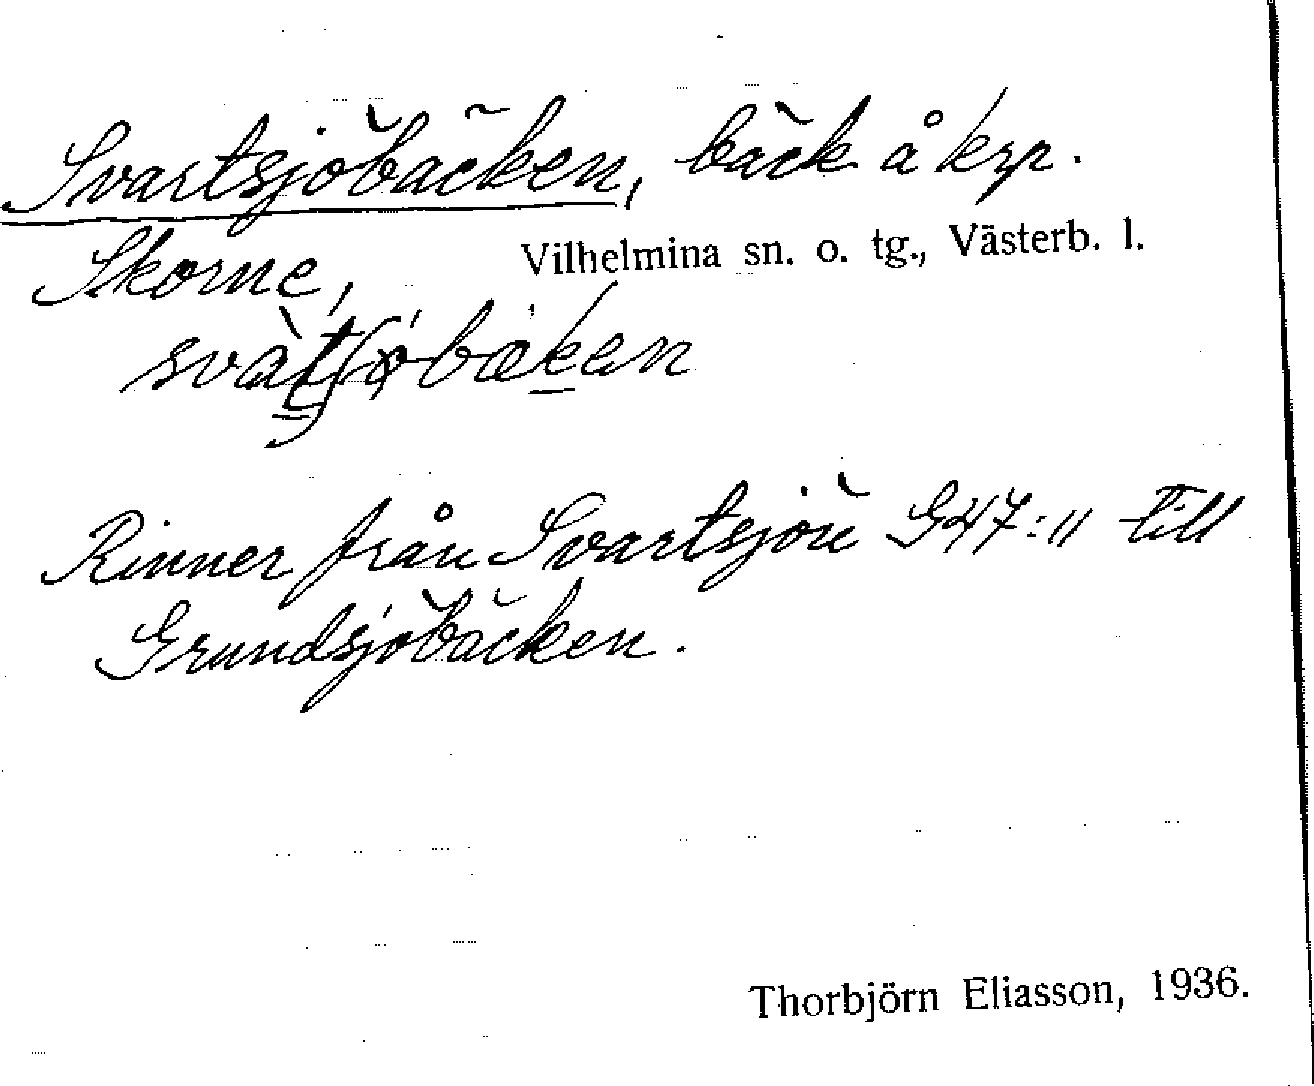 Svartsjöbäcken, bäck å krp.
Skorne, Vilhelmina sn. o. tg., Västerb. l.
Rinner från Svartsjön G47:11 till
Grundsjöbäcken.
Thorbjörn Eliasson, 1936.